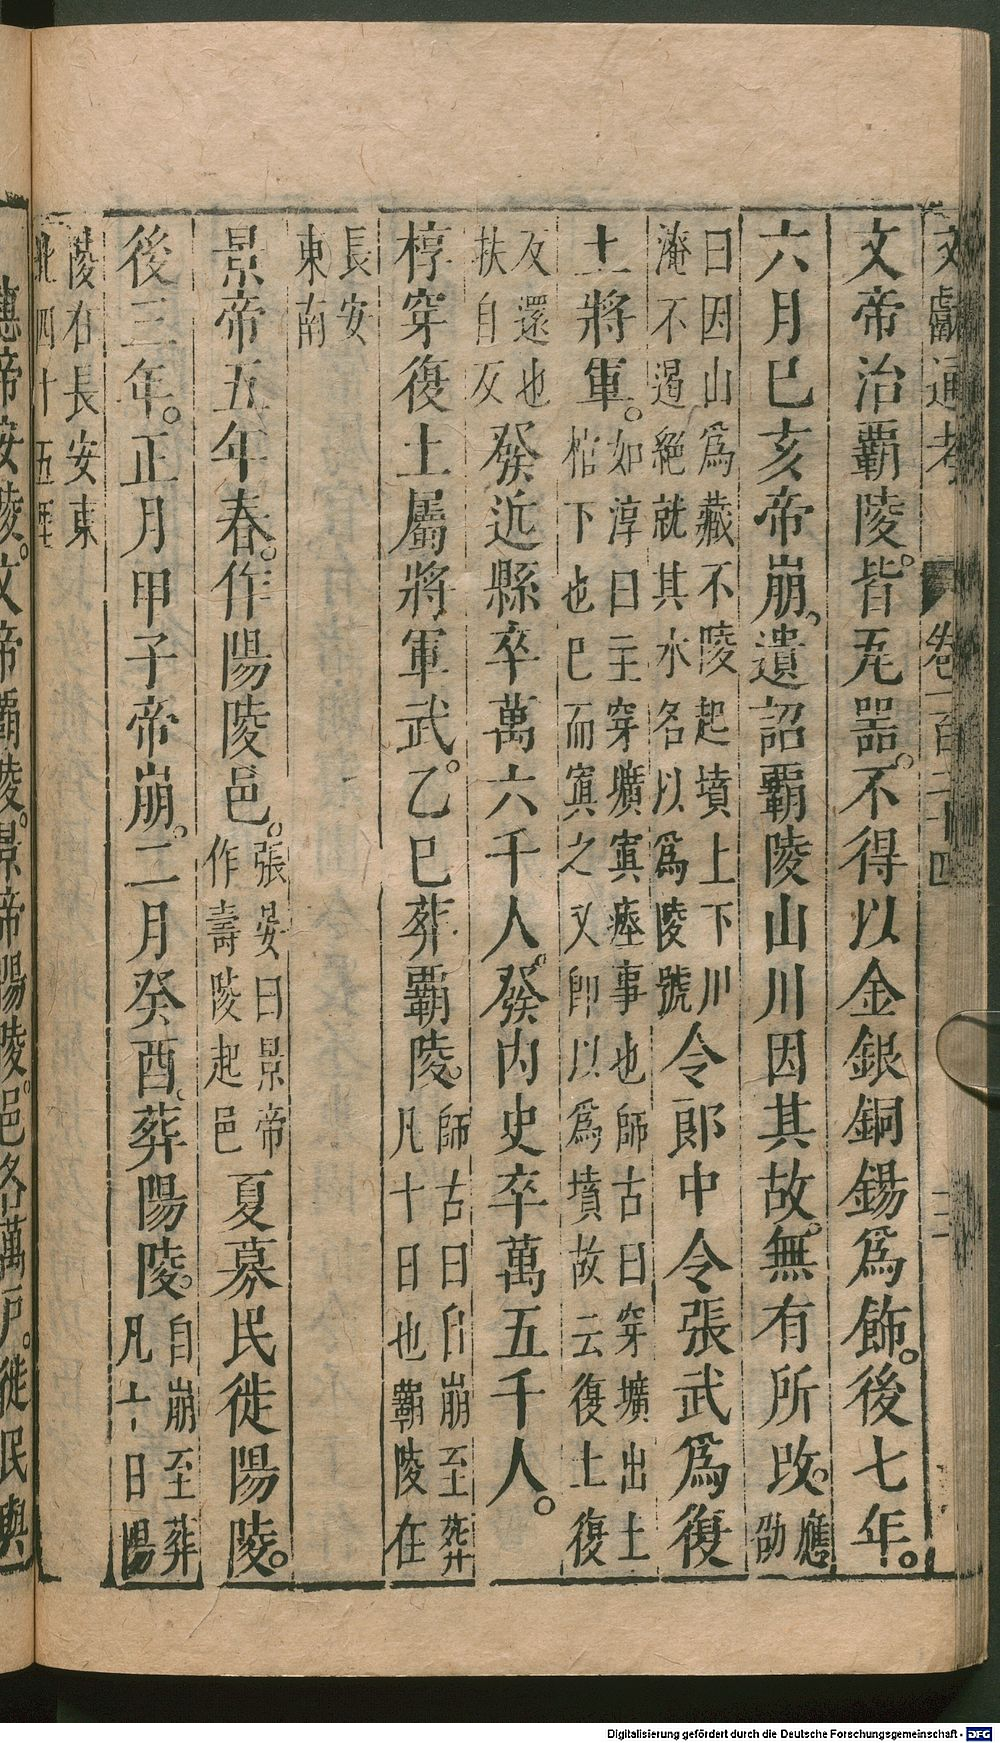 文獻通考 卷一百二十四 二
文帝治霸陵皆瓦器不得以金銀銅錫爲飾後七年
六月巳亥帝崩遺詔霸陵山川因其故無有所改應劭
曰因山爲藏不陵起墳上下川
淹不遏絕就其水名以爲陵號令郞中令張武爲復
土將軍如淳曰主穿壙寘瘞事也師古曰穿壙出土
棺下也巳而寘之又卽以爲墳故云復土復
反還也
扶自反發近縣卒萬六千人發內史卒萬五千人
槨穿復土屬將軍武乙巳葬霸陵師古曰自崩至葬
凡十日也霸陵在
長安
東南
景帝五年春作陽陵邑張晏曰景帝
作壽陵起邑夏募民徙陽陵
後三年正月甲子帝崩二月癸酉葬陽陵自崩至葬
凡十日陽
陵在長安東
北四十五里
惠帝安陵文帝霸陵景帝陽陵邑各萬戸徙民與
Digitalisierung gefördert durch die Deutsche Forschungsgemeinschaft - DFG